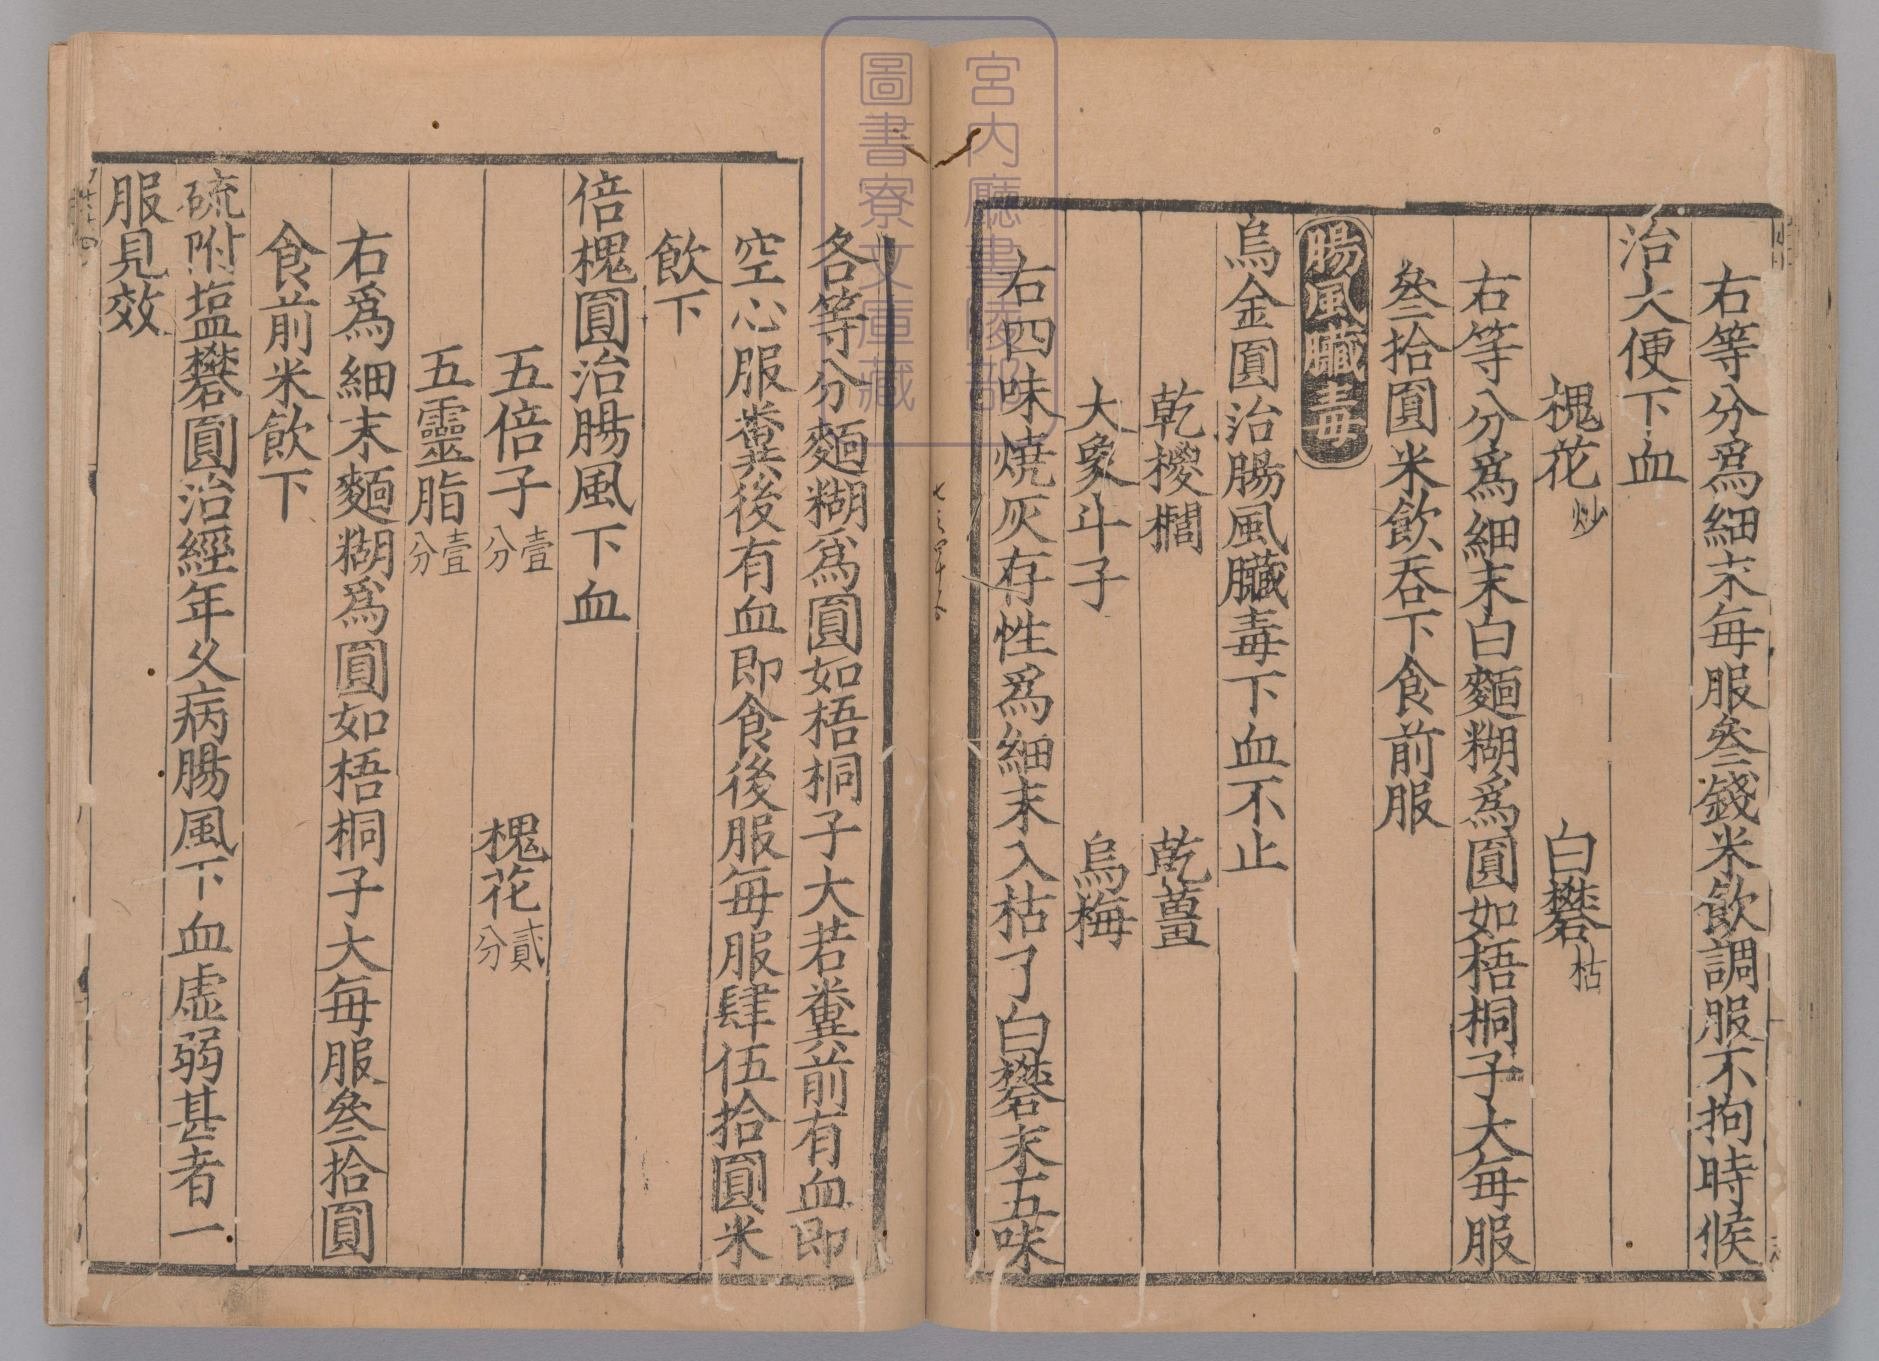 右等分爲細末每服叄錢米飲調服不拘時候
治大便下血
槐花炒 白礬枯
右等分爲細末白麵糊爲圓如梧桐子大每服
叄拾圓米飲吞下食前服
腸風臟毒
烏金圓治腸風臟毒下血不止
乾㮕櫚 乾薑
大象斗子 烏梅
右四味燒灰存性爲細末入枯了白礬末五味
各等分麵糊爲圓如梧桐子大若糞前有血即
空心服糞後有血即食後服每服肆伍拾圓米
飲下
倍槐圓治腸風下血
五倍子壹分 槐花貳分
五靈脂壹分
右爲細末麵糊爲圓如梧桐子大每服叄拾圓
食前米飲下
硫附塩礬圓治經年久病腸風下血虛弱甚者一
服見效
宮内廳書陵部
圖書寮文庫藏